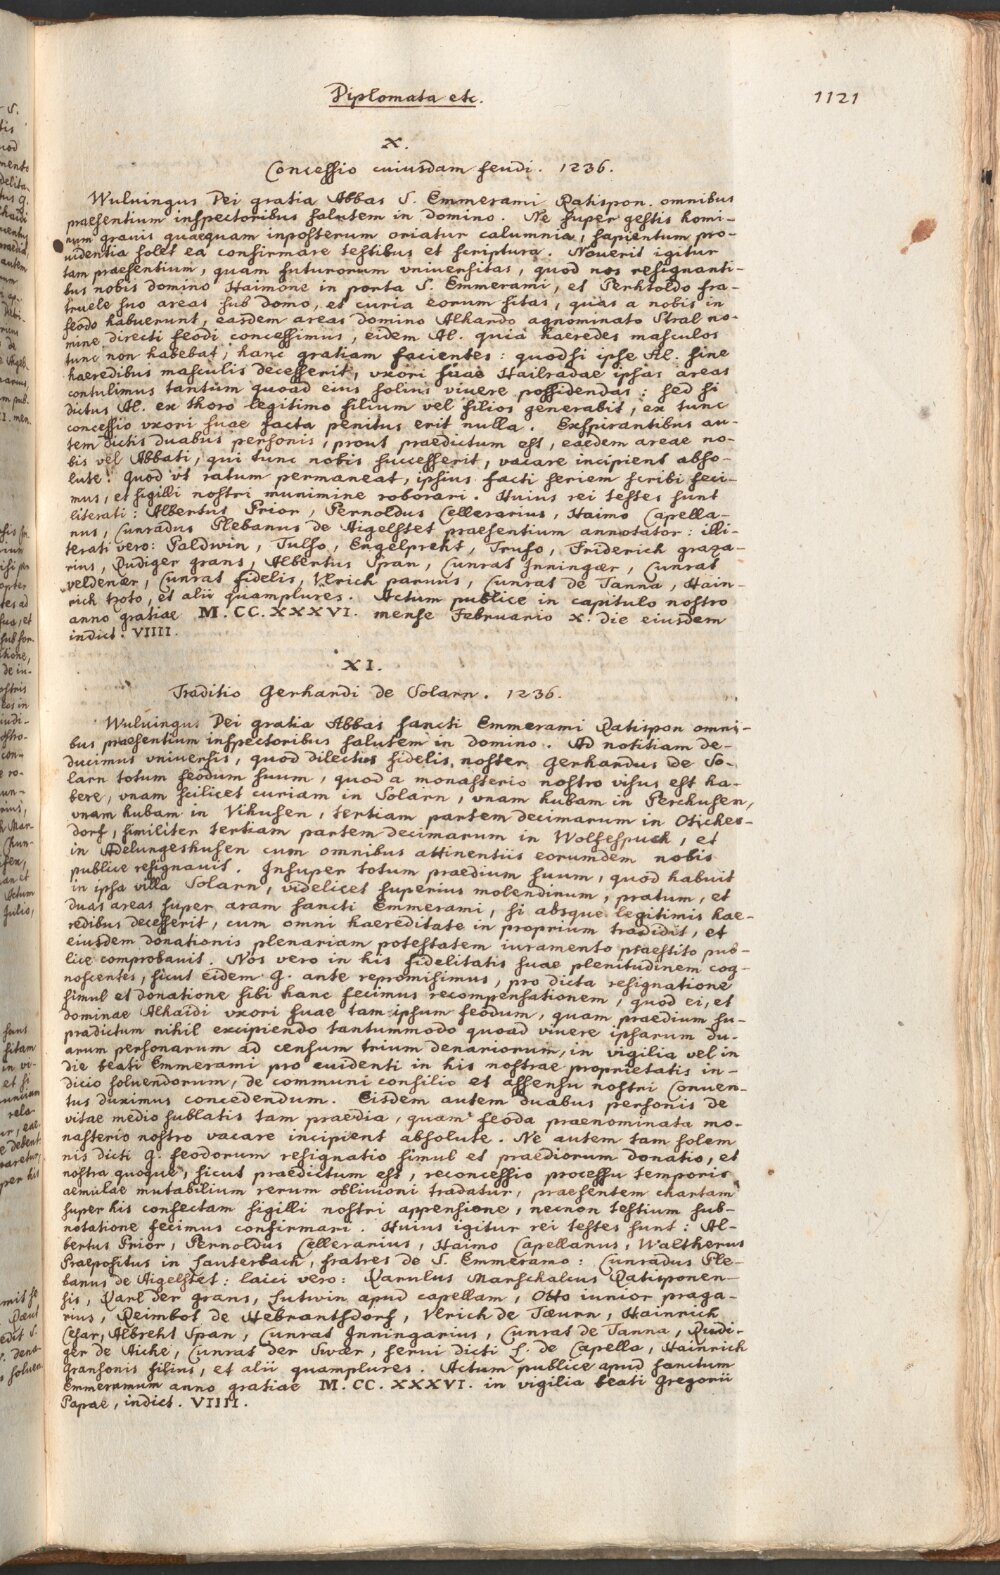 Diplomata etc.
1121
X.
Concessio cuiusdam feudi. 1236.
Wuluingus Dei gratia Abbas S. Emmerami Ratispon. omnibus
praesentium inspectoribus salutem in domino. Ne super gestis homi-
num grauis quaequam inposterum oriatur calumnia, sapientum pro-
uidentia solet ea confirmare testibus et scriptura. Nouerit igitur
tam praesentium, quam futurorum vniuersitas, quod nos resignanti-
bus nobis domino Haimone in porta S. Emmerami, et Perhtoldo fra-
truele suo areas sub domo, et curia eorum sitas, quas a nobis in
feodo habuerunt, easdem areas domino Alhardo agnominato Stral no-
mine directi feodi concessimus, eidem Al. quia haeredes masculos
tunc non habebat, hanc gratiam facientes: quodsi ipse Al. sine
haeredibus masculis decesserit, vxori suae Hailradae ipsas areas
contulimus tantum quoad eius solius viuere possidendas: sed si
dictus Al. ex thoro legitimo filium vel filios generabit, ex tunc
concessio vxori suae facta penitus erit nulla. Exspirantibus au-
tem dictis duabus personis, prout praedictum est, eaedem areae no-
bis vel Abbati, qui tunc nobis successerit, vacare incipient abso-
lute. Quod vt ratum permaneat, ipsius facti seriem scribi feci-
mus, et sigilli nostri munimine roborari. Huius rei testes sunt
literati: Albertus Prior, Pernoldus Cellerarius, Haimo Capella-
nus, Cunradus Plebanus de Aigelstet praesentium annotator: illi-
terati vero: Paldwin, Tulso, Engelpreht, Truso, Friderich graza-
rius, Rudiger grans, Albertus Span, Cunrat Inningær, Cunrat
veldenær, Cunrat fidelis, Vlrich paruus, Cunrat de Tanna, Hain-
rich kzoto, et alii quamplures. Actum publice in capitulo nostro
anno gratiae M.CC.XXXVI. mense Februario X. die eiusdem
indict. VIIII.
XI.
Traditio Gerhardi de Solarn. 1236.
Wuluingus Dei gratia Abbas sancti Emmerami Ratispon omni-
bus praesentium inspectoribus salutem in domino. Ad notitiam de-
ducimus vniuersis, quod dilectus fidelis noster Gerhardus de So-
larn totum feodum suum, quod a monasterio nostro visus est ha-
bere, vnam scilicet curiam in Solarn, vnam hubam in Perchusen,
vnam hubam in Vihusen, tertiam partem decimarum in Oticher-
dorf, similiter tertiam partem decimarum in Wolfespuch, et
in Adelungeshusen cum omnibus attinentiis eorumdem nobis
publice resignauit. Insuper totum praedium suum, quod habuit
in ipsa villa Solarn, videlicet superius molendinum, pratum, et
duas areas super aram sancti Emmerami, si absque legitimis hae-
redibus decesserit, cum omni haereditate in proprium tradidit, et
eiusdem donationis plenariam potestatem iuramento praestito pub-
lice comprobauit. Nos vero in his fidelitatis suae plenitudinem cog-
noscentes, sicut eidem G. ante repromisimus, pro dicta resignatione
simul et donatione sibi hanc fecimus recompensationem, quod ei, et
dominae Alhaidi vxori suae tam ipsum feodum, quam praedium su-
pradictum nihil excipiendo tantummodo quoad viuere ipsarum du-
arum personarum ad censum trium denariorum, in vigilia vel in
die beati Emmerami pro euidenti in his nostrae proprietatis in-
dicio soluendorum, de communi consilio et assensu nostri Conuen-
tus duximus concedendum. Eisdem autem duabus personis de
vitae medio sublatis tam praedia, quam feoda praenominata mo-
nasterio nostro vacare incipient absolute. Ne autem tam solem
nis dicti G. feodorum resignatio simul et praediorum donatio, et
nostra quoque, sicut praedictum est, reconcessio processu temporis
aemulae mutabilium rerum obliuioni tradatur, praesentem chartam
super his confectam sigilli nostri appensione, necnon testium sub-
notatione fecimus confirmari. Huius igitur rei testes sunt: Al-
bertus Prior, Pernoldus Cellerarius, Haimo Capellanus, Waltherus
Praepositus in Lauterbach, fratres de S. Emmeramo: Cunradus Ple-
banus de Aigelstet: laici vero: Karulus Marschalcus Ratisponen-
sis, Karl der grans, Lutwin apud capellam, Otto iunior praga-
rius, Reimbot de Hebrantsdorf, Vlrich de Tæurn, Hainrich
Cesar, Albreht Span, Cunrat Inningarius, Cunrat de Tanna, Rudi-
ger de Aiche, Cunrat der Swær, serui dicti L. de Capella, Hainrich
Gransonis filius, et alii quamplures. Actum publice apud sanctum
Emmeramum anno gratiae M.CC.XXXVI. in vigilia beati Gregorii
Papae, indict. VIIII.